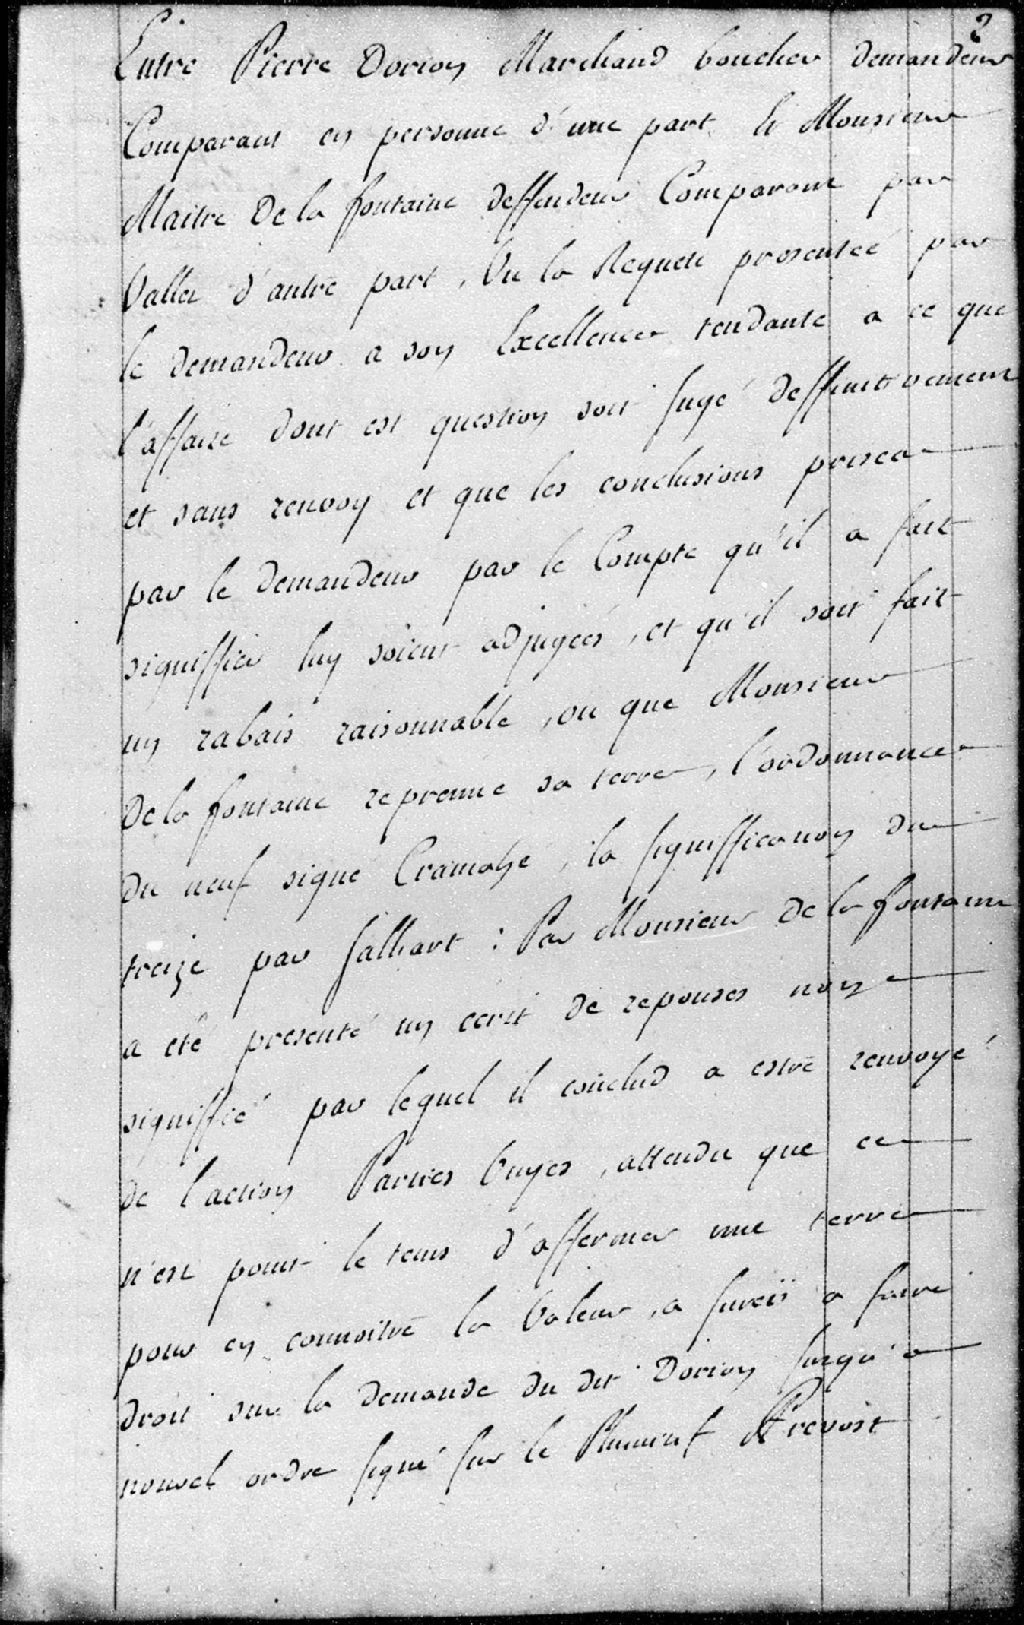 2
Entre Pierre Dorion Marchand boucher demandeur
Comparant en personne d'une part, Et Monsieur
Maitre De la fontaine deffendeur Comparant par
Vallei d'autre part, Vu la Requete presenteé par
le demandeur a son Excellence tendante a ce que
l'affaire dont est question soit jugé deffinitivement
et sans renvoy et que les conclusions prises
par le demandeur par le Compte qu'il a fait
signiffier luy soient adjugées, et qu'il soit fait
un rabais raisonnable, ou que Monsieur
De la fontaine reprenne sa terre, l'ordonnance
du neuf signé Cramahe, la signiffication du
treize par Jalliart : Par Monsieur De la fontaine
a été presenté un ecrit de reponses non
signiffié par lequel il conclud a estre renvoyé
de l'action Parties Ouyes, attendu que ce
n'est point le tems d'affermer une terre
pour en connoitre la Valeur, a surcis a faire
droit sur la demande du dit Dorion jusqu'a
nouvel ordre signé sur le Plumitif Prevost